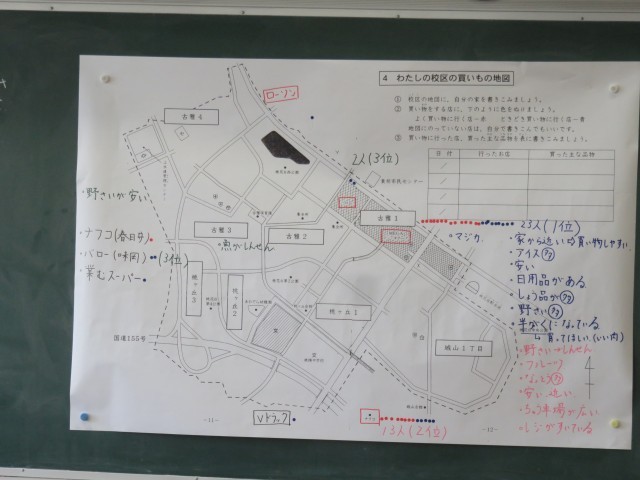 4 わたしの校区の買いもの地図
① 校区の地図に、自分の家を書きこみましょう。
② 買い物をする店に、下のように色を付けましょう。
よく買い物に行く店…赤 ときどき買い物に行く店…青
地図にのっていない店は、自分で書きこんでもいいです。
③ 買い物に行った店、買った主な品物を表に書きこみましょう。
日付 行ったお店 買った主な品物
ローソン
古雅4
2人(3位)
古雅1
古雅3
古雅2
魚がしんせん
桃ヶ丘3
桃ヶ丘2
桃ヶ丘1
城山1丁目
国道155号
文
文
・野さいが安い
・ナフコ(春日井)
・バロー(味岡) (3位)
・業むスーパー
23人(1位)
・マジカ
・家から近い 買い物しやすい
・アイス 多
・安い
・日用品がある
・しょう品が多
・野さい多
・半がくになっている
・野さいがしんせん
・フルーツ
・安い 近い
・ちゅう車場が広い
・レジがすいている
Vドラッグ
13人(2位)
—11—
—12—